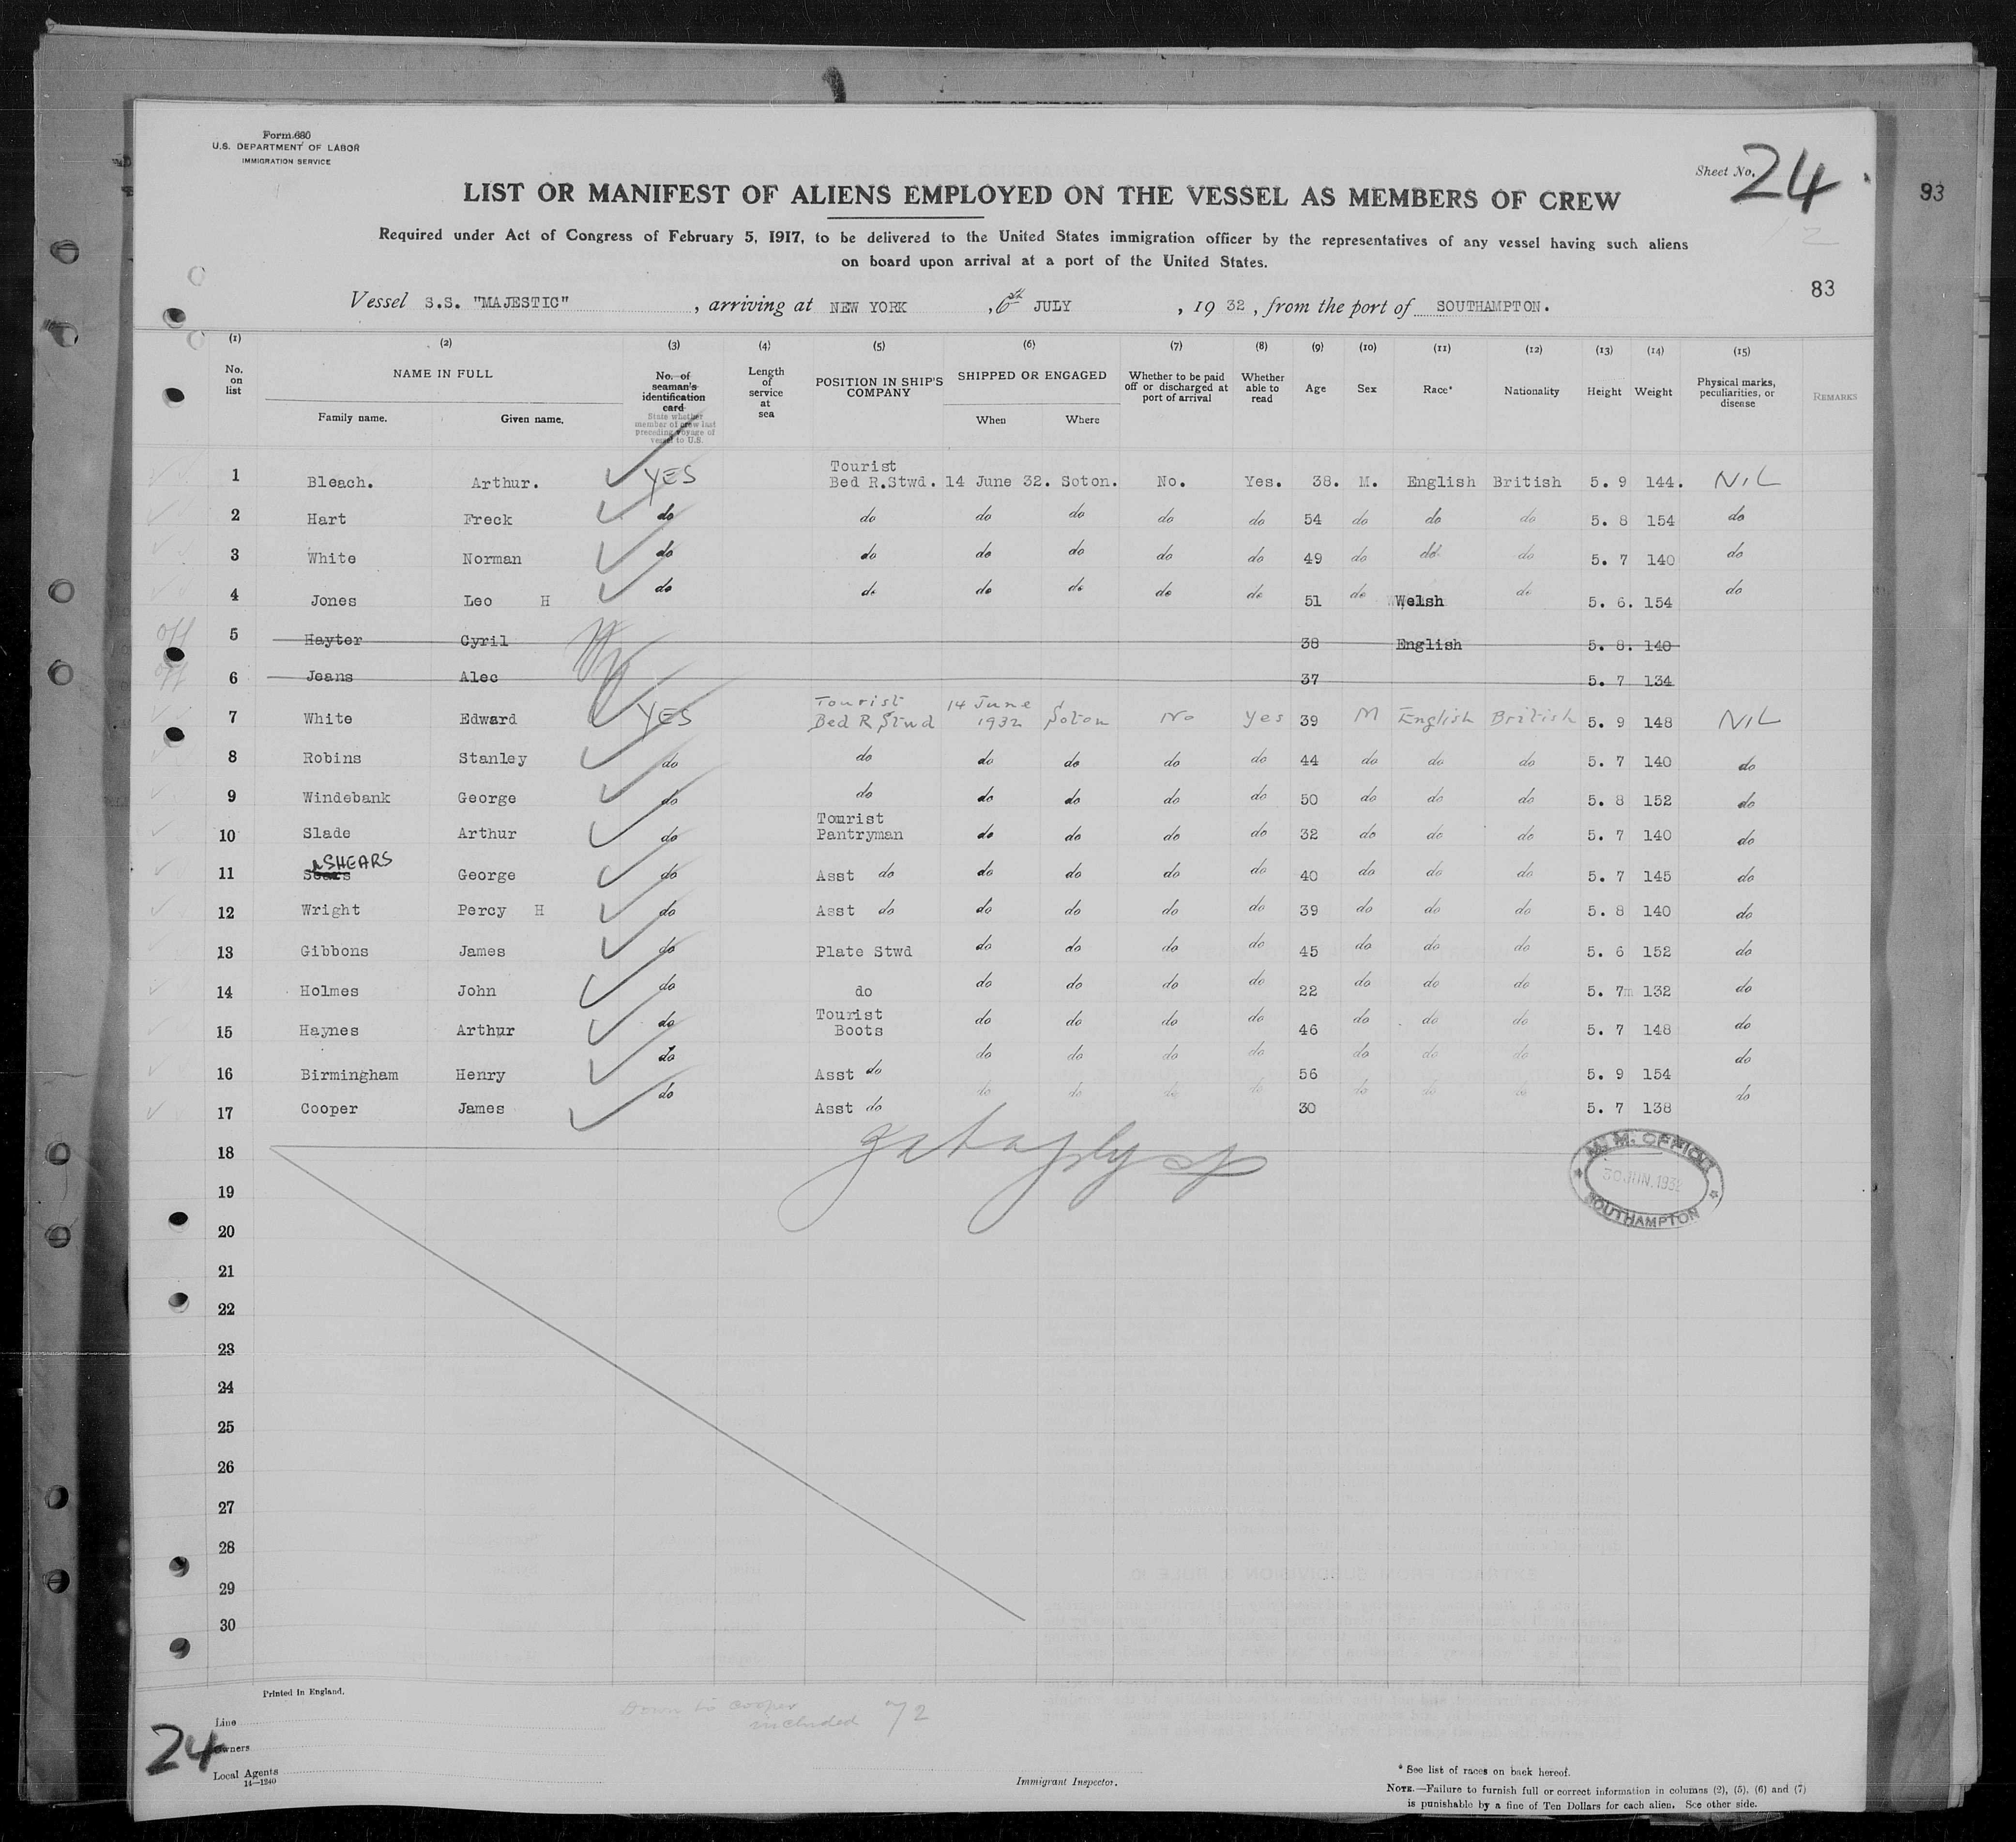 Form 680
U.S. DEPARTMENT OF LABOR
IMMIGRATION SERVICE
Sheet No. 24
93
LIST OR MANIFEST OF ALIENS EMPLOYED ON THE VESSEL AS MEMBERS OF CREW
Required under Act of Congress of February 5, 1917, to be delivered to the United States immigration officer by the representatives of any vessel having such aliens
on board upon arrival at a port of the United States.
83
Vessel S.S. "MAJESTIC" , arriving at NEW YORK , 6th JULY , 19 32 , from the port of SOUTHAMPTON.
(1) (2) (3) (4) (5) (6) (7) (8) (9) (10) (11) (12) (13) (14) (15)
No. on list
NAME IN FULL
Family name. Given name.
No. of seaman's identification card
State whether member of crew last preceding voyage of vessel to U.S.
Length of service at sea
POSITION IN SHIP'S COMPANY
SHIPPED OR ENGAGED
When Where
Whether to be paid off or discharged at port of arrival
Whether able to read
Age
Sex
Race*
Nationality
Height
Weight
Physical marks, peculiarities, or disease
REMARKS
1 Bleach. Arthur. YES Tourist Bed R.Stwd. 14 June 32. Soton. No. Yes. 38. M. English British 5. 9 144. NIL
2 Hart Freck do do do do do do 54 do do do 5. 8 154 do
3 White Norman do do do do do do 49 do do do 5. 7 140 do
4 Jones Leo H do do do do do do 51 do Welsh do 5. 6. 154 do
off 5 Hayter Cyril 38 English 5. 8. 140
off 6 Jeans Alec 37 5. 7 134
7 White Edward YES Tourist Bed R Stwd 14 June 1932 Soton No yes 39 M English British 5. 9 148 NIL
8 Robins Stanley do do do do do do 44 do do do 5. 7 140 do
9 Windebank George do do do do do do 50 do do do 5. 8 152 do
10 Slade Arthur do Tourist Pantryman do do do do 32 do do do 5. 7 140 do
11 Sears SHEARS George do Asst do do do do do 40 do do do 5. 7 145 do
12 Wright Percy H do Asst do do do do do 39 do do do 5. 8 140 do
13 Gibbons James do Plate Stwd do do do do 45 do do do 5. 6 152 do
14 Holmes John do do do do do do 22 do do do 5. 7 132 do
15 Haynes Arthur do Tourist Boots do do do do 46 do do do 5. 7 148 do
16 Birmingham Henry do Asst do do do do do 56 do do do 5. 9 154 do
17 Cooper James do Asst do do do do do 30 do do do 5. 7 138 do
18
M. M. OFFICE
30 JUN. 1932
SOUTHAMPTON
19
20
21
22
23
24
25
26
27
28
29
30
Printed in England.
Down to Cooper
included 72
24
Line
Owners
Local Agents
14—1240
Immigrant Inspector.
* See list of races on back hereof.
NOTE.—Failure to furnish full or correct information in columns (2), (5), (6) and (7)
is punishable by a fine of Ten Dollars for each alien. See other side.